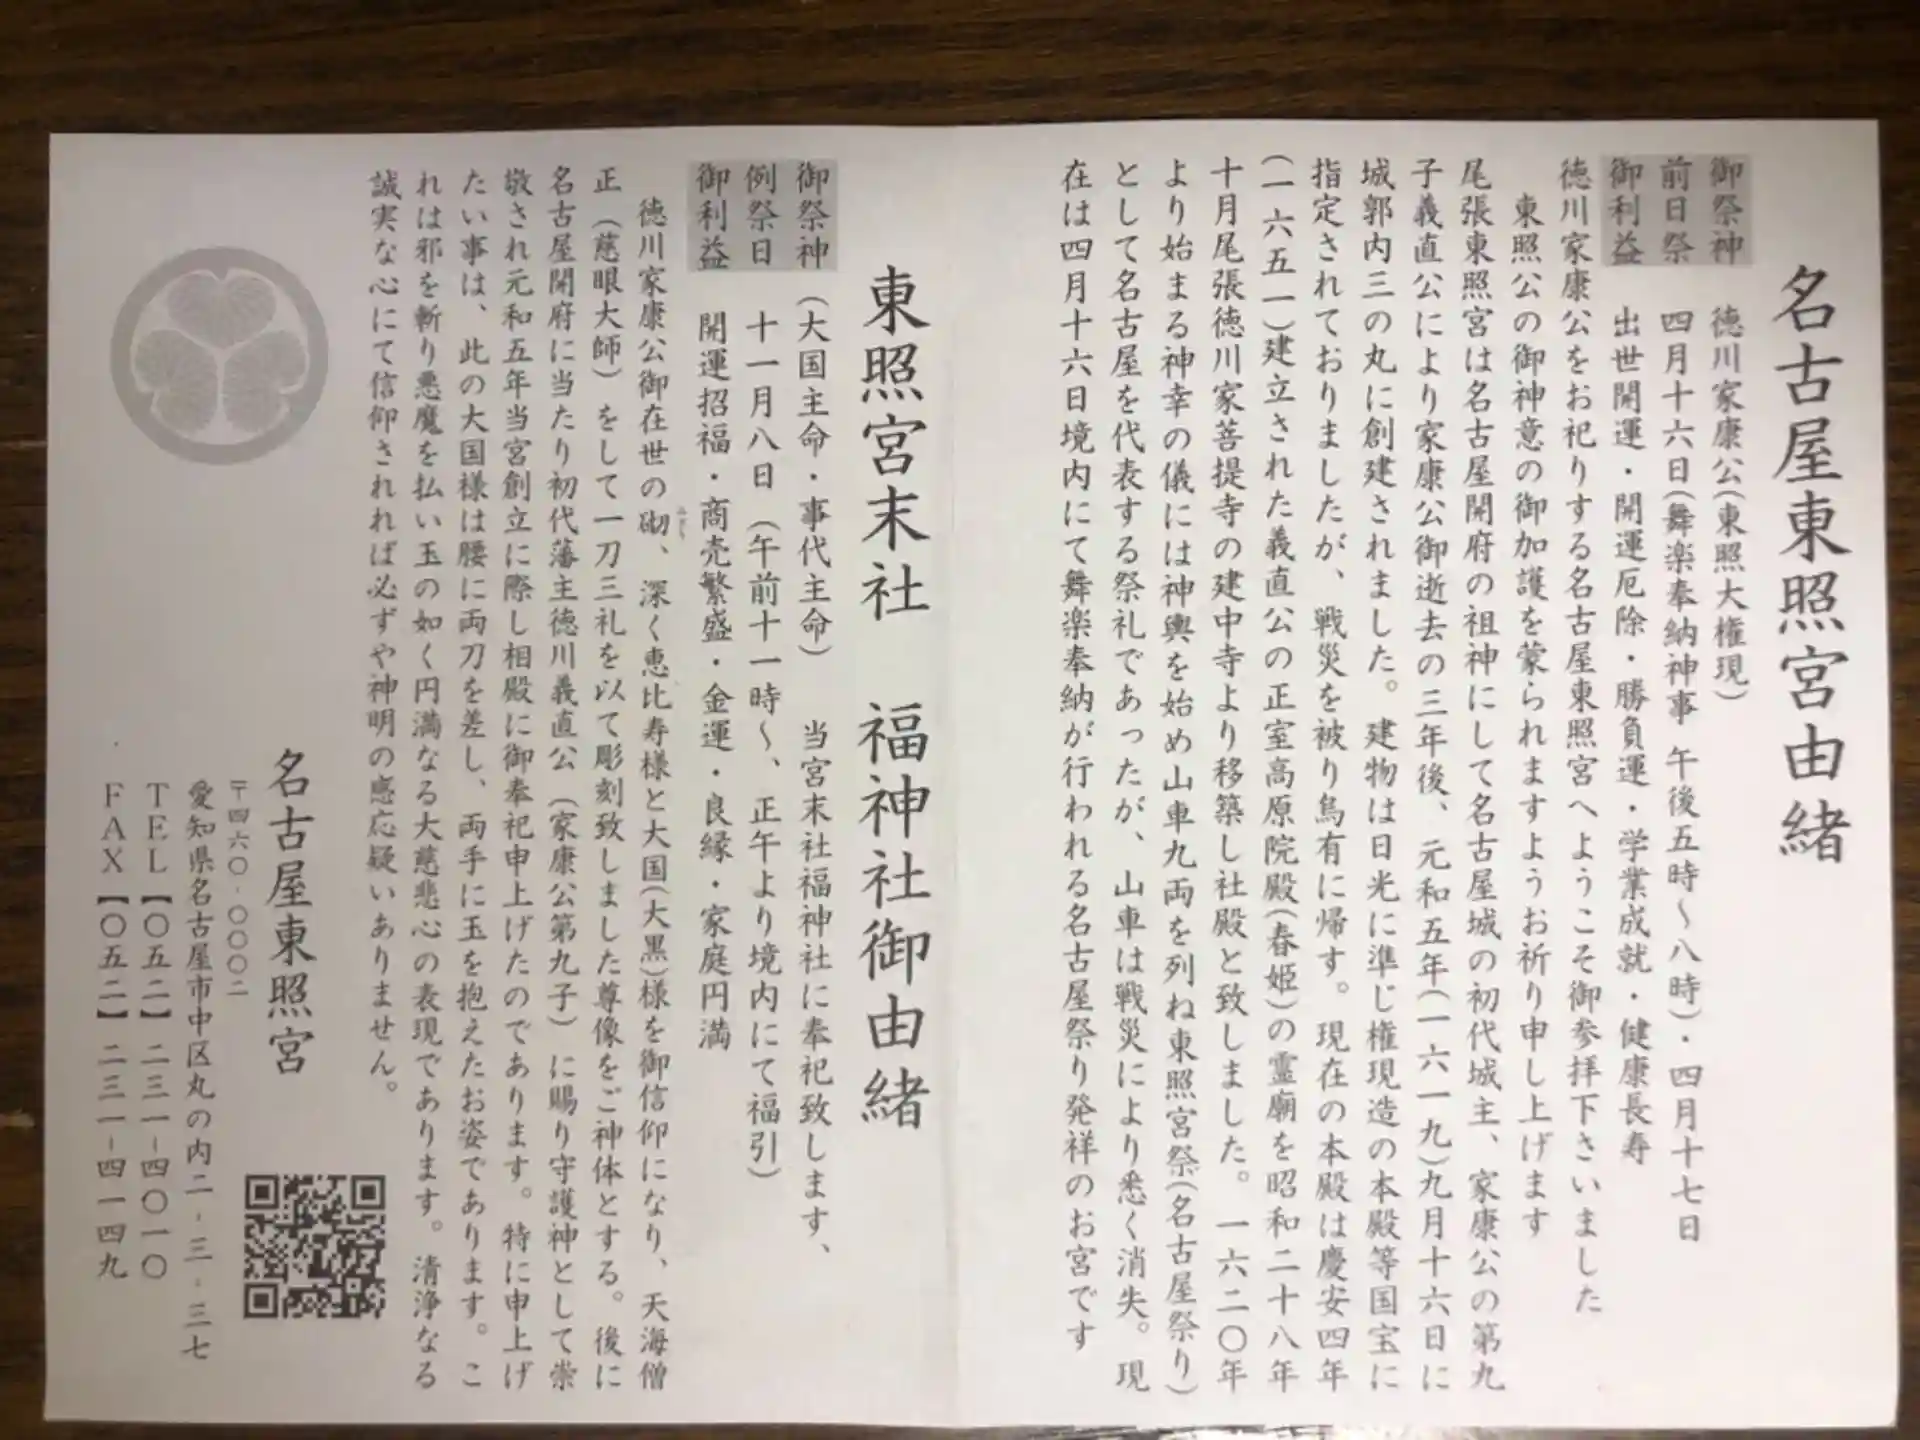 名古屋東照宮由緒
御祭神 徳川家康公(東照大権現)
前日祭 四月十六日(舞楽奉納神事 午後五時〜八時)・四月十七日
御利益 出世開運・開運厄除・勝負運・学業成就・健康長寿
徳川家康公をお祀りする名古屋東照宮へようこそ御参拝下さいました
東照公の御神意の御加護を蒙られますようお祈り申し上げます
尾張東照宮は名古屋開府の祖神にして名古屋城の初代城主、家康公の第九
子義直公により家康公御逝去の三年後、元和五年(一六一九)九月十六日に
城郭内三の丸に創建されました。建物は日光に準じ権現造の本殿等国宝に
指定されておりましたが、戦災を被り烏有に帰す。現在の本殿は慶安四年
(一六五一)建立された義直公の正室高原院殿(春姫)の霊廟を昭和二十八年
十月尾張徳川家菩提寺の建中寺より移築し社殿と致しました。一六二〇年
より始まる神幸の儀には神輿を始め山車九両を列ね東照宮祭(名古屋祭り)
として名古屋を代表する祭礼であったが、山車は戦災により悉く消失。現
在は四月十六日境内にて舞楽奉納が行われる名古屋祭り発祥のお宮です
東照宮末社 福神社御由緒
御祭神 (大国主命・事代主命) 当宮末社福神社に奉祀致します、
例祭日 十一月八日 (午前十一時〜、正午より境内にて福引)
御利益 開運招福・商売繁盛・金運・良縁・家庭円満
徳川家康公御在世の砌、深く恵比寿様と大国(大黒)様を御信仰になり、天海僧
正(慈眼大師)をして一刀三礼を以て彫刻致しました尊像をご神体とする。後に
名古屋開府に当たり初代藩主徳川義直公(家康公第九子)に賜り守護神として崇
敬され元和五年当宮創立に際し相殿に御奉祀申上げたのであります。特に申上げ
たい事は、此の大国様は腰に両刀を差し、両手に玉を抱えたお姿であります。こ
れは邪を斬り悪魔を払い玉の如く円満なる大慈悲心の表現であります。清浄なる
誠実な心にて信仰されれば必ずや神明の感応疑いありません。
名古屋東照宮
〒四六〇-〇〇〇二
愛知県名古屋市中区丸の内二-三-三七
TEL【〇五二】二三一-四〇一〇
FAX【〇五二】二三一-四一四九